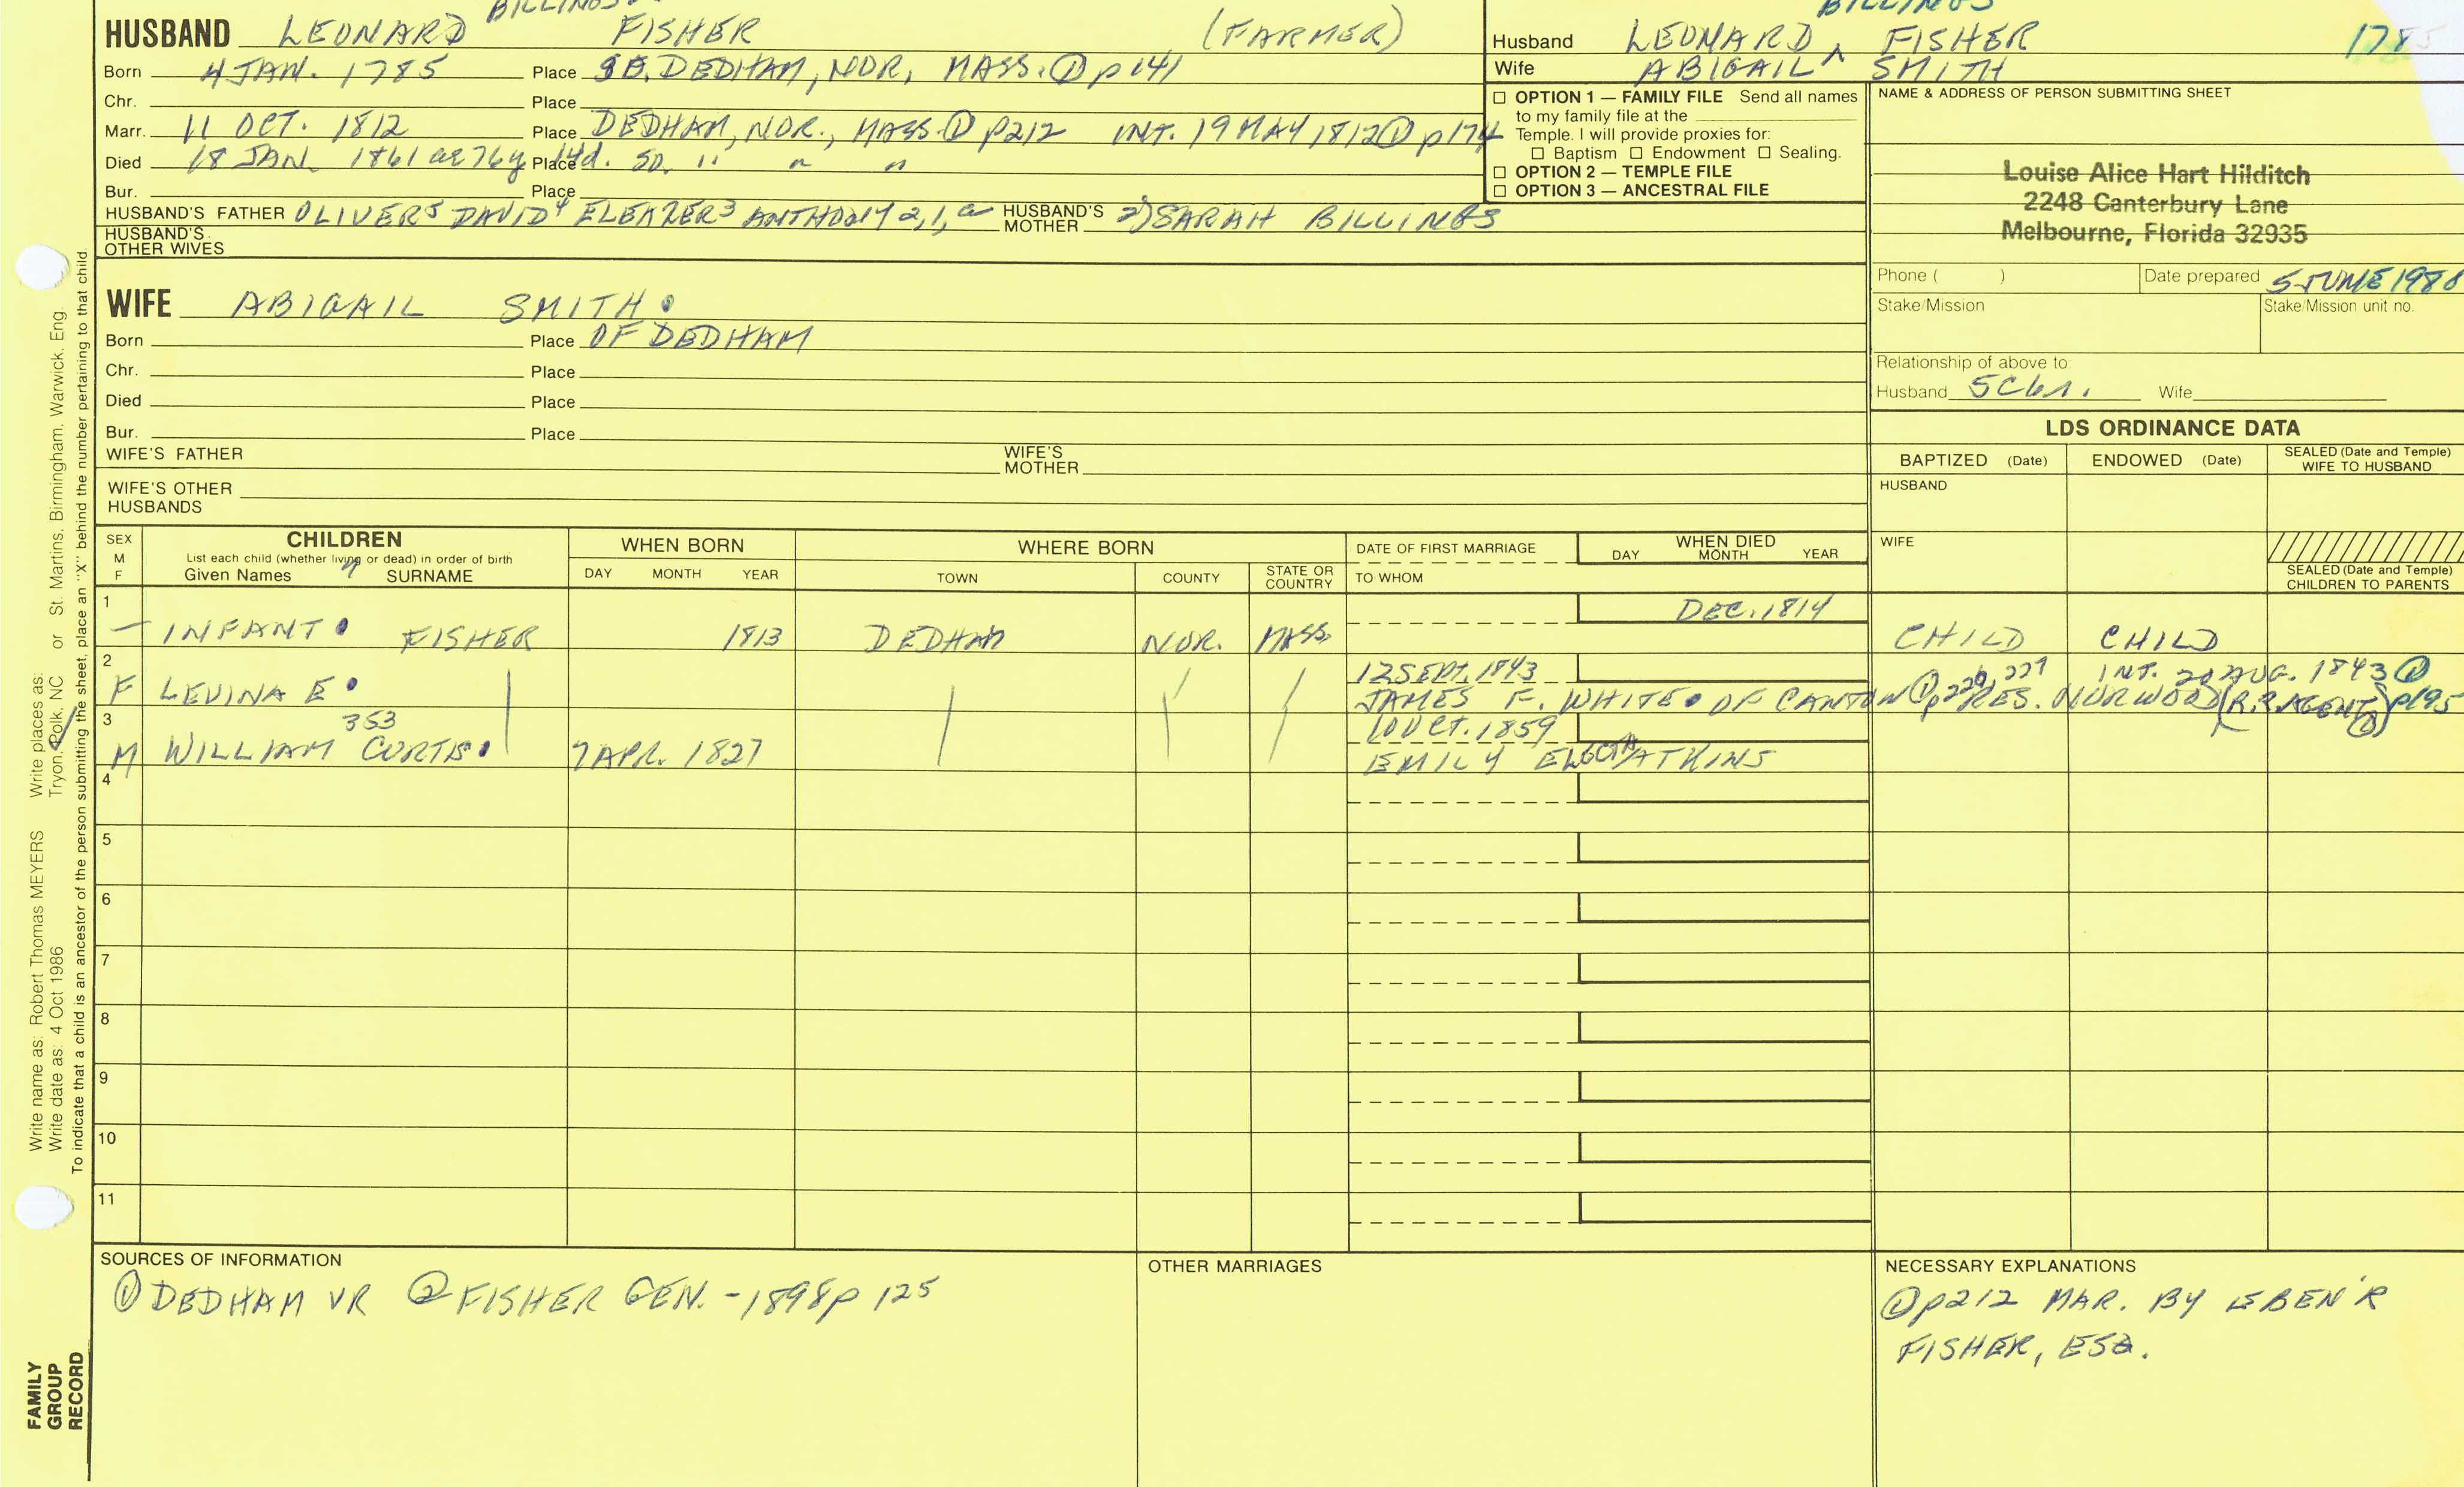 BILLINGS
HUSBAND LEONARD FISHER (FARMER)
Born 4 JAN. 1785 Place DEDHAM, NOR, MASS. ① p 141
Chr. Place
Marr. 11 OCT. 1812 Place DEDHAM, NOR., MASS. ① p212 INT. 19 MAY 1812 ① p174
Died 18 JAN 1861 ae 76y 14d. Place SO. " " "
Bur. Place
HUSBAND'S FATHER OLIVER5 DAVID4 ELEAZER3 ANTHONY 2,1, a HUSBAND'S MOTHER 2) SARAH BILLINGS
HUSBAND'S OTHER WIVES
WIFE ABIGAIL SMITH
Born Place OF DEDHAM
Chr. Place
Died Place
Bur. Place
WIFE'S FATHER WIFE'S MOTHER
WIFE'S OTHER HUSBANDS
BILLINGS
Husband LEONARD ^ FISHER 1785
Wife ABIGAIL SMITH
☐ OPTION 1 — FAMILY FILE Send all names
to my family file at the
Temple. I will provide proxies for:
☐ Baptism ☐ Endowment ☐ Sealing.
☐ OPTION 2 — TEMPLE FILE
☐ OPTION 3 — ANCESTRAL FILE
NAME & ADDRESS OF PERSON SUBMITTING SHEET
Louise Alice Hart Hilditch
2248 Canterbury Lane
Melbourne, Florida 32935
Phone ( ) Date prepared 5 JUNE 1988
Stake/Mission Stake/Mission unit no.
Relationship of above to
Husband 5C6r. Wife
LDS ORDINANCE DATA
BAPTIZED (Date) ENDOWED (Date) SEALED (Date and Temple) WIFE TO HUSBAND
HUSBAND
WIFE
SEALED (Date and Temple) CHILDREN TO PARENTS
SEX M F CHILDREN WHEN BORN WHERE BORN DATE OF FIRST MARRIAGE WHEN DIED
List each child (whether living or dead) in order of birth DAY MONTH YEAR
Given Names SURNAME DAY MONTH YEAR TOWN COUNTY STATE OR COUNTRY TO WHOM
1 DEC. 1814
— INFANT FISHER 1813 DEDHAM NOR. MASS. CHILD CHILD
2 12 SEPT. 1843 INT. 20 AUG. 1843 ①
F LEVINA E JAMES F. WHITE OF CANTON ① p 226, 227 RES. NORWOOD (R.R. AGENT ②) p195
3 353 10 OCT. 1859
M WILLIAM CURTIS 7 APR. 1827 EMILY ATKINS
4
5
6
7
8
9
10
11
SOURCES OF INFORMATION
① DEDHAM VR ② FISHER GEN. - 1898 p 125
OTHER MARRIAGES
NECESSARY EXPLANATIONS
① p212 MAR. BY EBEN'R
FISHER, ESQ.
Write name as: Robert Thomas MEYERS Write places as:
Write date as: 4 Oct 1986 Tryon, Polk, NC or St. Martins, Birmingham, Warwick, Eng.
To indicate that a child is an ancestor of the person submitting the sheet, place an "X" behind the number pertaining to that child.
FAMILY
GROUP
RECORD